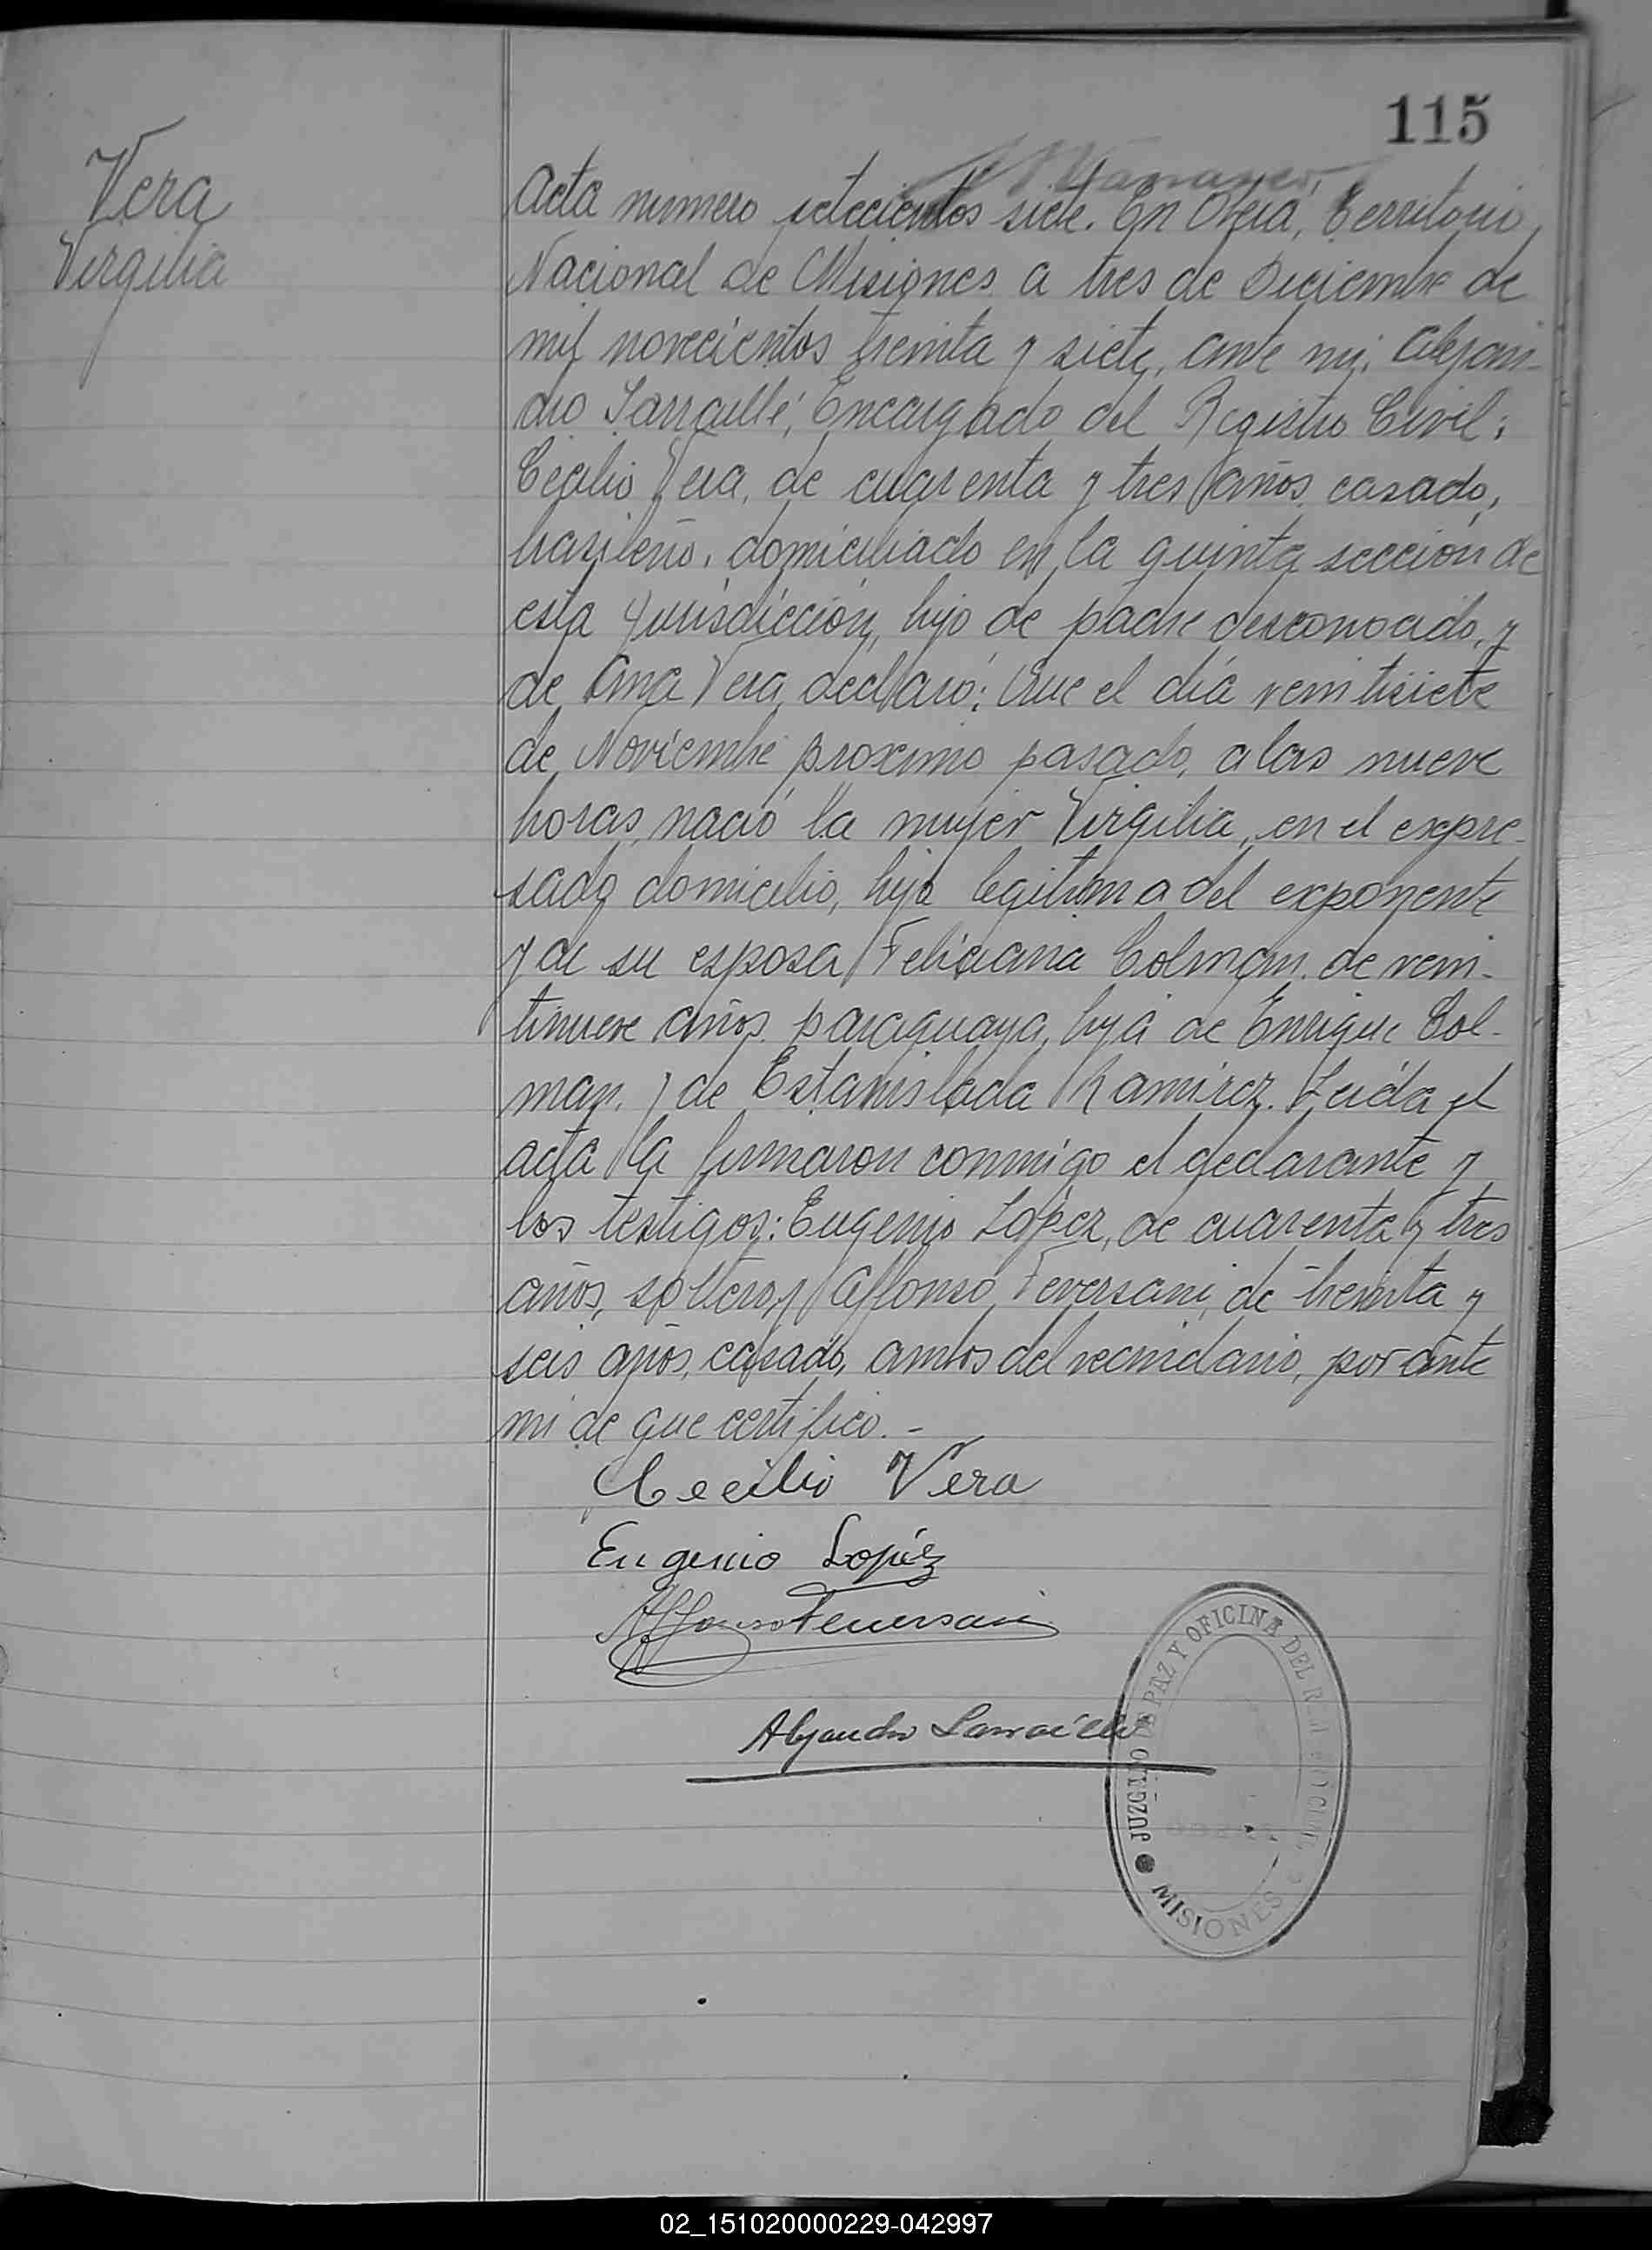 115
Vera
Virgilia
Acta numero setecientos siete. En Oberá, Territorio
Nacional de Misiones a tres de Diciembre de
mil novecientos treinta y siete, ante mi, Alejan-
dro Larraillé, Encargado del Registro Civil;
Cecilio Vera, de cuarenta y tres años, casado,
brasileño, domiciliado en la quinta sección de
esta Jurisdicción, hijo de padre desconocido, y
de Ana Vera, declaró: Que el día veintisiete
de Noviembre proximo pasado, a las nueve
horas, nació la mujer Virgilia, en el expre-
sado domicilio, hija legitima del exponente
y de su esposa Feliciana Colman, de vein-
tinueve años, paraguaya, hija de Enrique Col-
man, y de Estanislada Ramirez. Leída el
acta la firmaron conmigo el declarante y
los testigos: Eugenio López, de cuarenta y tres
años, soltero, y Affonso Feversani, de treinta y
seis años, casado, ambos del vecindario, por ante
mi de que certifico.-
Cecilio Vera
Eugenio Lopéz
Affonso Feversani
Alejandro Larraillé
JUZGADO DE PAZ Y OFICINA DEL
MISIONES
02_151020000229-042997